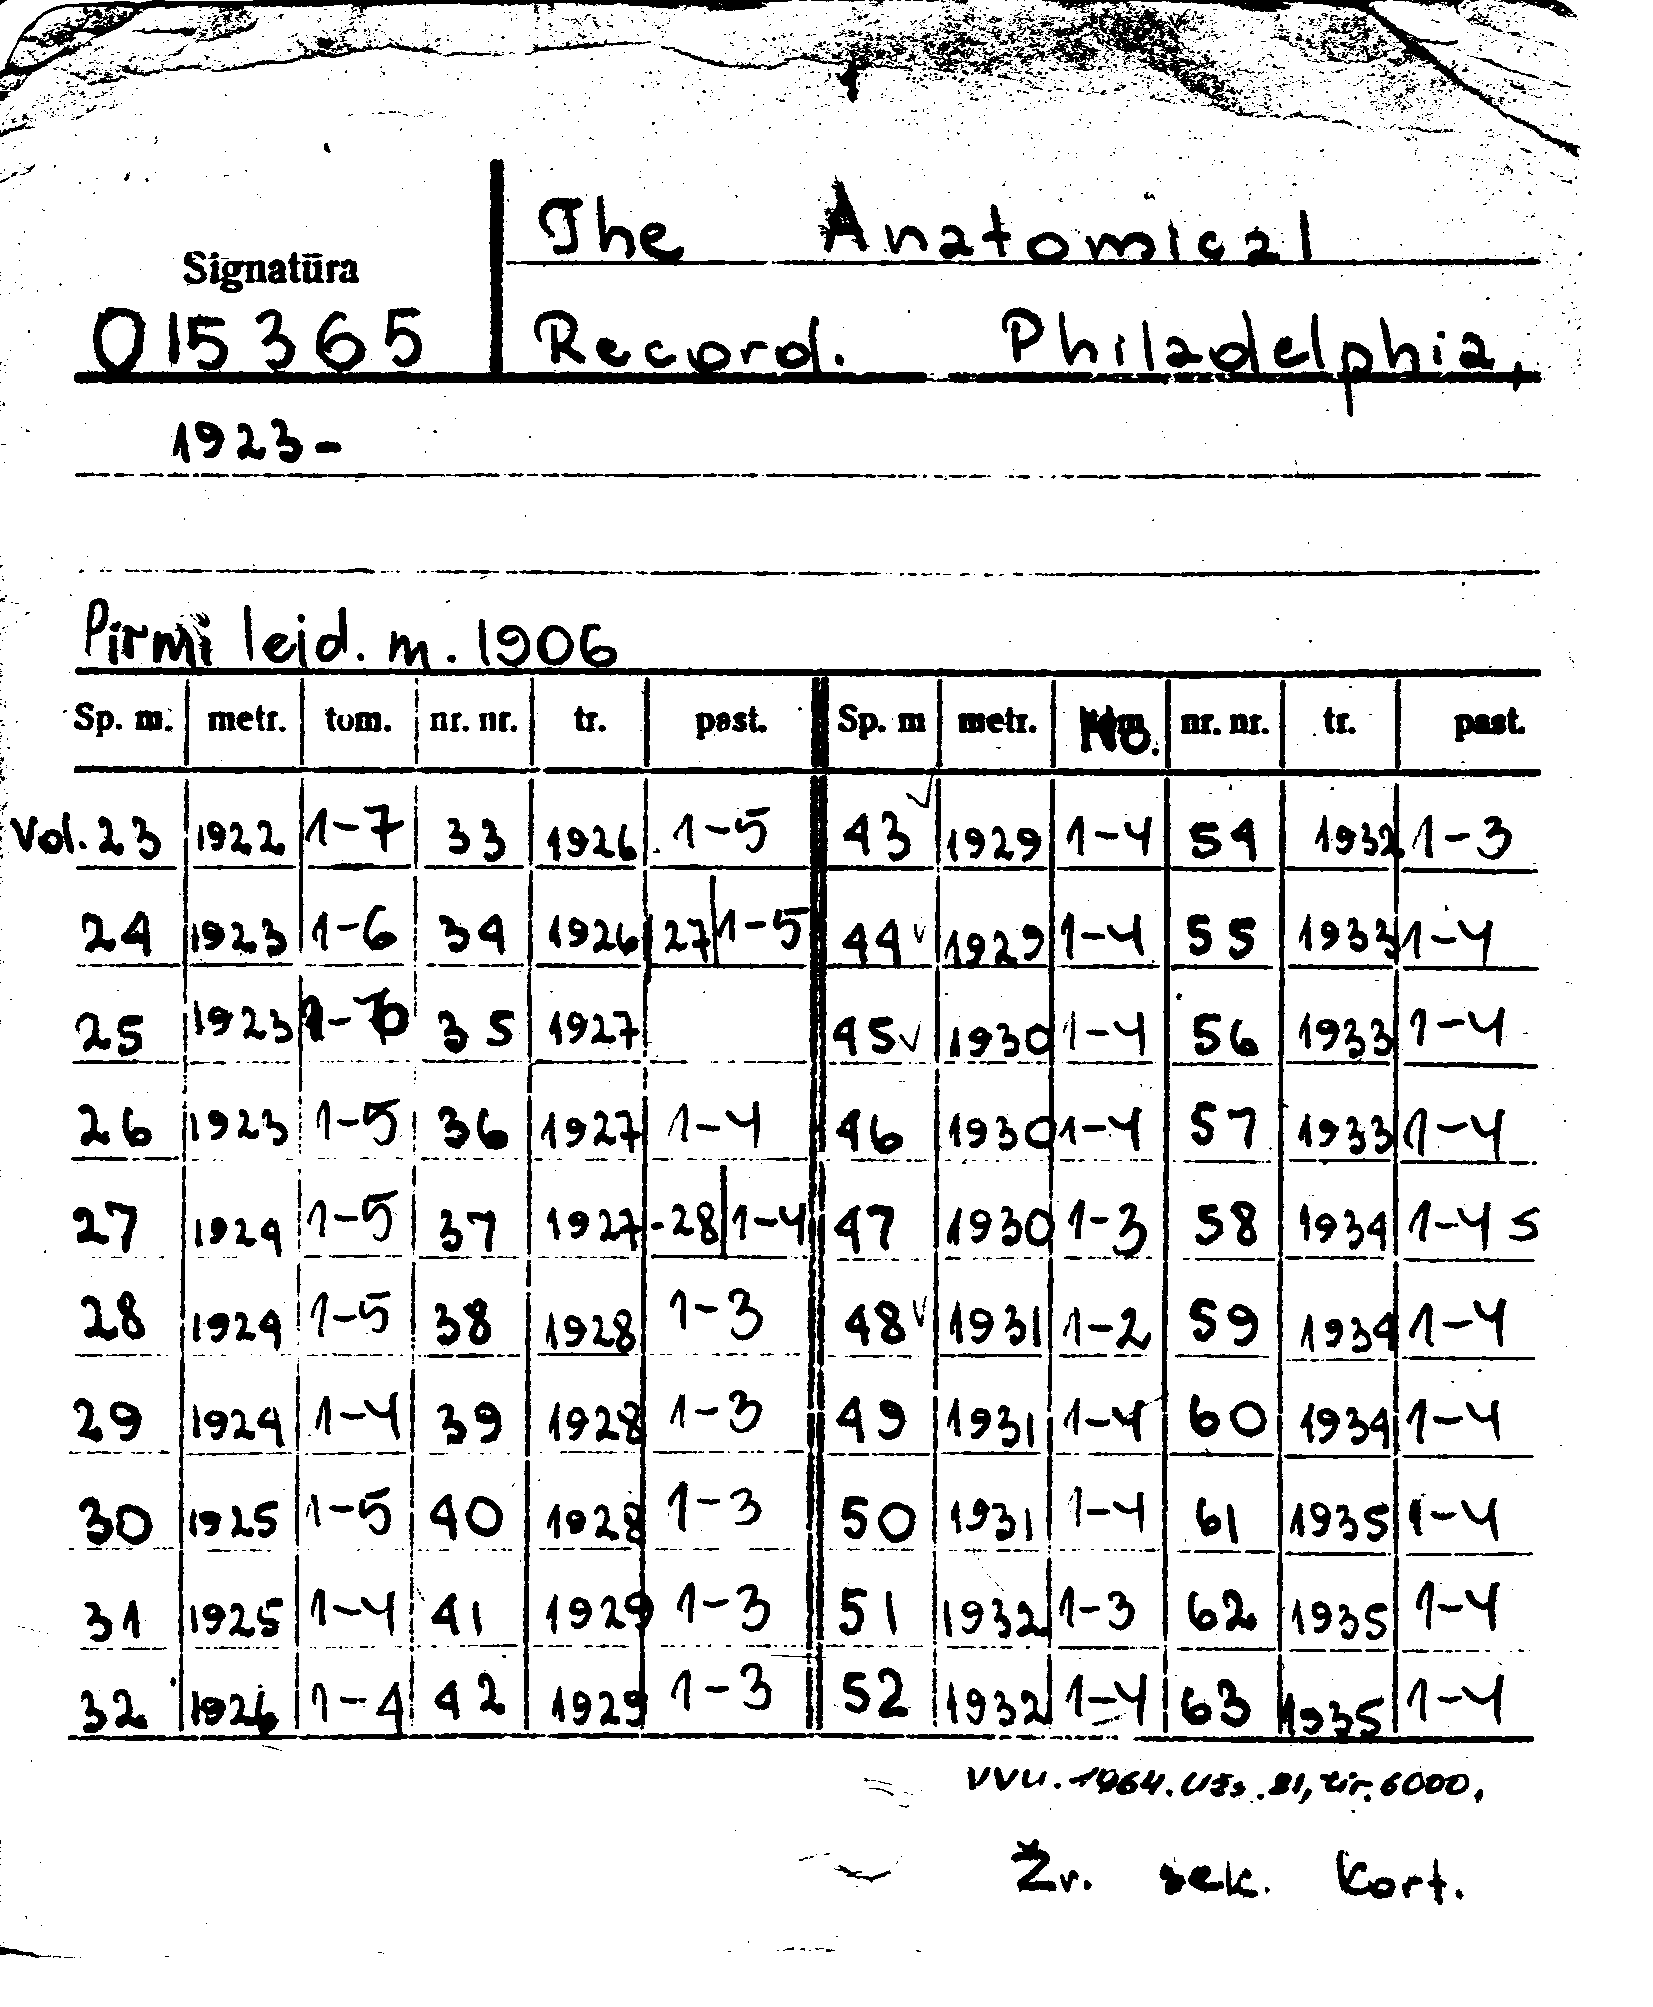 The Anatomical
Signatūra
015365 Record. Philadelphia,
1923-
Pirmi leid. m. 1906
Sp. m. metr. tom. nr. nr. tr. past. Sp. m metr. No. nr. nr. tr. past.
Vol. 23 1922 1-7 33 1926 1-5 43 1929 1-4 54 1932 1-3
24 1923 1-6 34 1926 27 1-5 44 1929 1-4 55 1933 1-4
25 1923 35 1927 45 1930 1-4 56 1933 1-4
26 1923 1-5 36 1927 1-4 46 1930 1-4 57 1933 1-4
27 1924 1-5 37 1927 -28 1-4 47 1930 1-3 58 1934 1-4 5
28 1924 1-5 38 1928 1-3 48 1931 1-2 59 1934 1-4
29 1924 1-4 39 1928 1-3 49 1931 1-4 60 1934 1-4
30 1925 1-5 40 1928 1-3 50 1931 1-4 61 1935 1-4
31 1925 1-4 41 1929 1-3 51 1932 1-3 62 1935 1-4
32 1926 1-4 42 1929 1-3 52 1932 1-4 63 1935 1-4
VVU. 1964. Užs. 81, tir. 6000,
Žr. sek. kort.